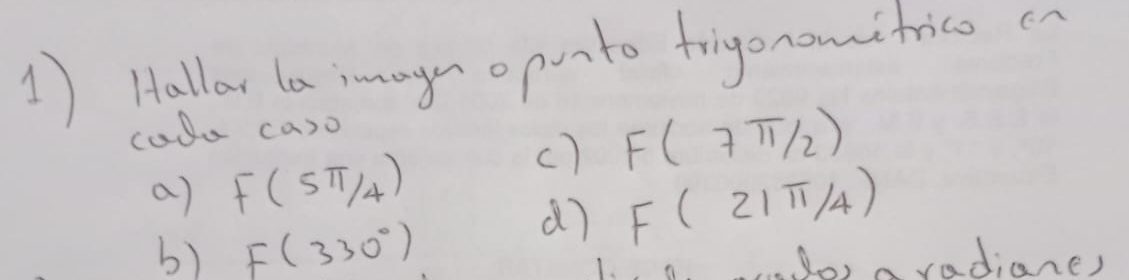 1) Hallar la imagen o punto trigonométrico en
cada caso
a) F(5π/4)
b) F(330°)
c) F(7π/2)
d) F(21π/4)
grados a radianes